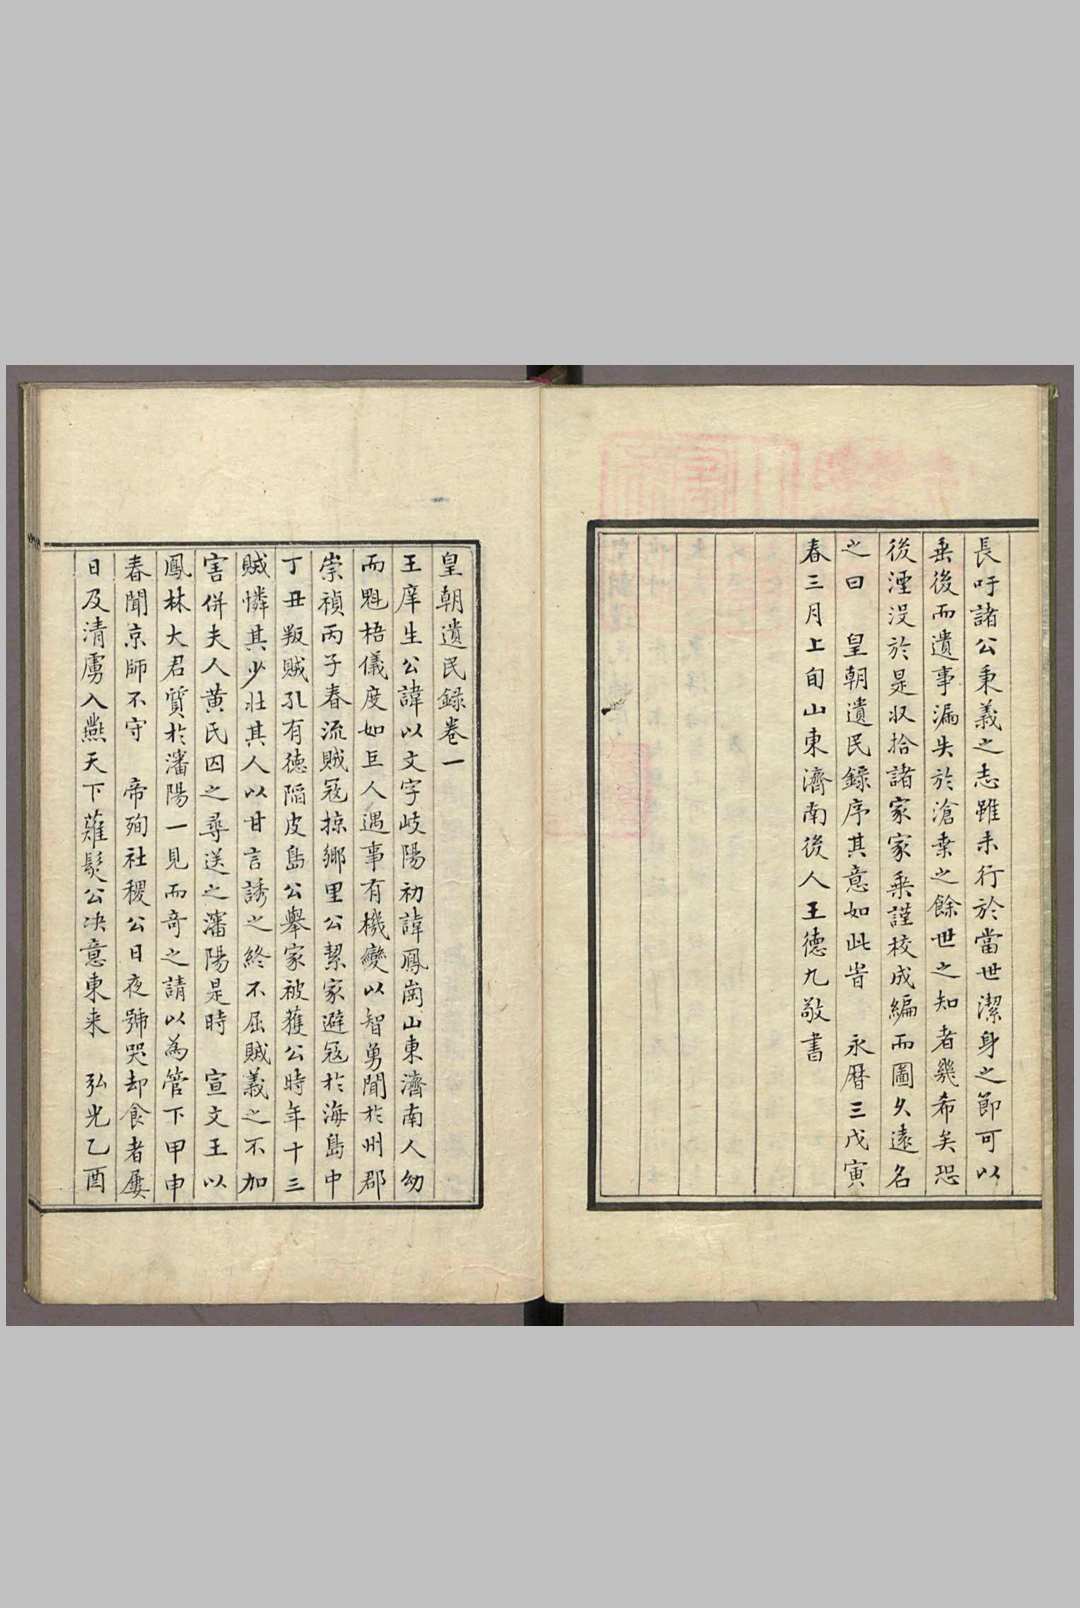 長吁諸公秉義之志雖未行於當世潔身之節可以
垂後而遺事漏失於滄桒之餘世之知者幾希矣恐
後湮没於是収拾諸家家乗謹校成編而圖久遠名
之曰　皇朝遺民錄序其意如此旹　永曆三戊寅
春三月上旬山東濟南後人王德九敬書
皇朝遺民録卷一
王庠生公諱以文字岐陽初諱鳳崗山東濟南人幼
而魁梧儀度如巨人遇事有機變以智勇聞於州郡
崇禎丙子春流賊冦掠鄉里公挈家避冦於海島中
丁丑叛賊孔有德陷皮島公舉家被獲公時年十三
賊憐其少壯其人以甘言誘之終不屈賊義之不加
害併夫人黄民囚之尋送之瀋陽是時　宣文王以
鳳林大君質於瀋陽一見而奇之請以為管下甲申
春聞京師不守　帝殉社稷公日夜號哭却食者屢
日及清虜入燕天下薙髮公决意東来　弘光乙酉